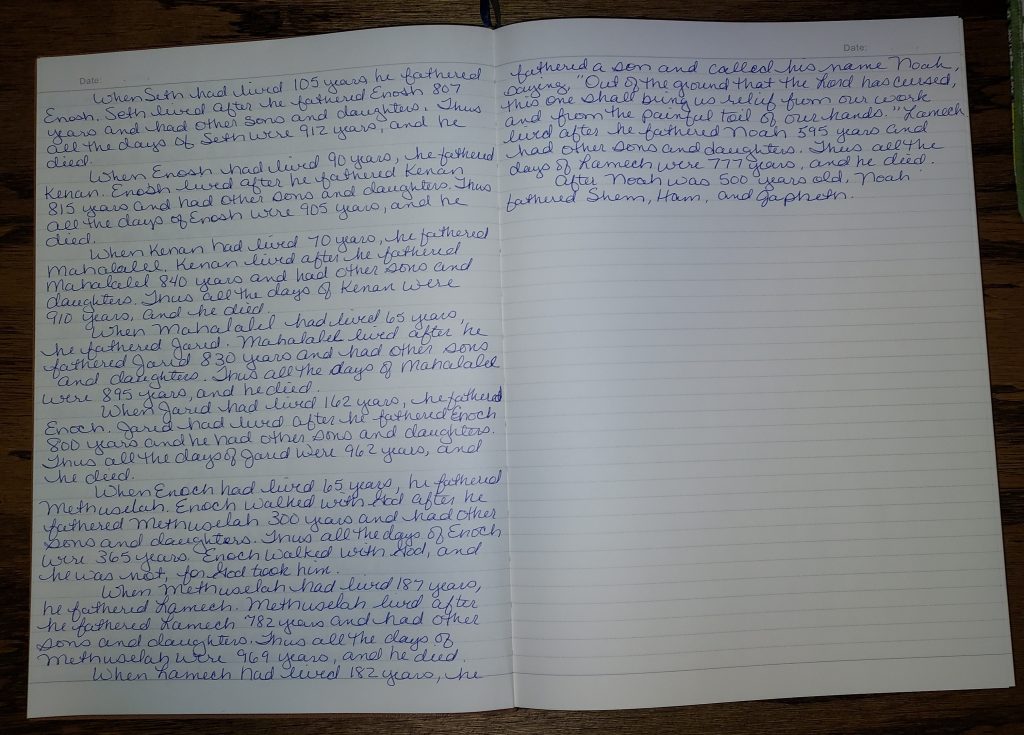 Date:
When Seth had lived 105 years he fathered
Enosh. Seth lived after he fathered Enosh 807
years and had other sons and daughters. Thus
all the days of Seth were 912 years, and he
died.
When Enosh had lived 90 years, he fathered
Kenan. Enosh lived after he fathered Kenan
815 years and had other sons and daughters. Thus
all the days of Enosh were 905 years, and he
died.
When Kenan had lived 70 years, he fathered
Mahalalel. Kenan lived after he fathered
Mahalalel 840 years and had other sons and
daughters. Thus all the days of Kenan were
910 years, and he died.
When Mahalalel had lived 65 years,
he fathered Jared. Mahalalel lived after he
fathered Jared 830 years and had other sons
and daughters. Thus all the days of Mahalalel
were 895 years, and he died.
When Jared had lived 162 years, he fathered
Enoch. Jared had lived after he fathered Enoch
800 years and he had other sons and daughters.
Thus all the days of Jared were 962 years, and
he died.
When Enoch had lived 65 years, he fathered
Methuselah. Enoch walked with God after he
fathered Methuselah 300 years and had other
sons and daughters. Thus all the days of Enoch
were 365 years. Enoch walked with God, and
he was not, for God took him.
When Methuselah had lived 187 years,
he fathered Lamech. Methuselah lived after
he fathered Lamech 782 years and had other
sons and daughters. Thus all the days of
Methuselah were 969 years, and he died.
When Lamech had lived 182 years, he
Date:
fathered a son and called his name Noah,
saying, "Out of the ground that the Lord has cursed,
this one shall bring us relief from our work
and from the painful toil of our hands." Lamech
lived after he fathered Noah 595 years and
had other sons and daughters. Thus all the
days of Lamech were 777 years, and he died.
After Noah was 500 years old, Noah
fathered Shem, Ham, and Japheth.